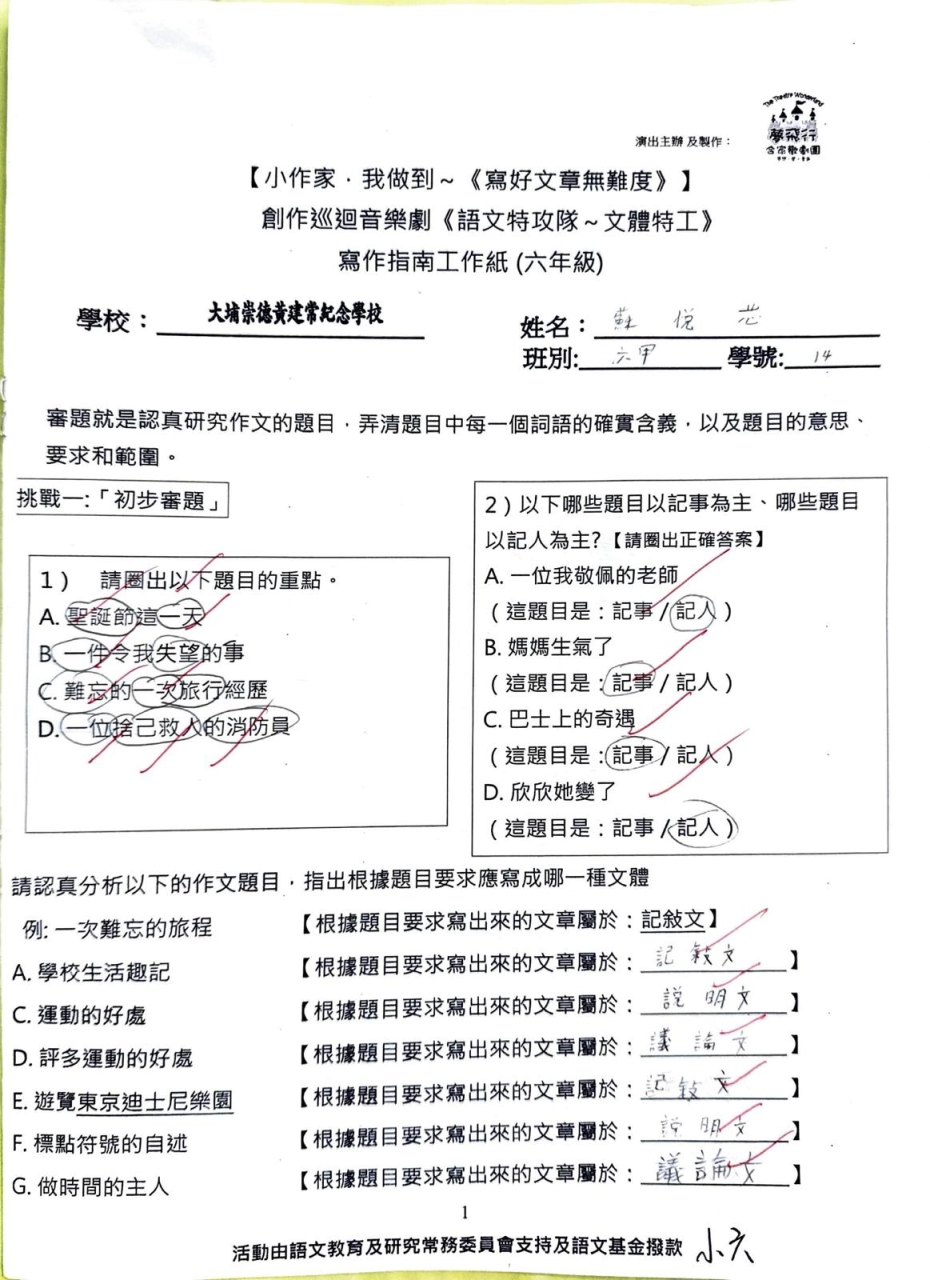 The Theatre Wonderland
夢飛行
合家歡劇團
演出主辦及製作：
【小作家．我做到～《寫好文章無難度》】
創作巡迴音樂劇《語文特攻隊～文體特工》
寫作指南工作紙 (六年級)
學校：大埔崇德黃建常紀念學校
姓名：蘇悅芯
班別:六甲 學號:14
審題就是認真研究作文的題目，弄清題目中每一個詞語的確實含義，以及題目的意思、
要求和範圍。
挑戰一:「初步審題」
1） 請圈出以下題目的重點。
A. 聖誕節這一天
B. 一件令我失望的事
C. 難忘的一次旅行經歷
D. 一位捨己救人的消防員
2）以下哪些題目以記事為主、哪些題目
以記人為主?【請圈出正確答案】
A. 一位我敬佩的老師
（這題目是：記事 / 記人）
B. 媽媽生氣了
（這題目是：記事 / 記人）
C. 巴士上的奇遇
（這題目是：記事 / 記人）
D. 欣欣她變了
（這題目是：記事 / 記人）
請認真分析以下的作文題目，指出根據題目要求應寫成哪一種文體
例: 一次難忘的旅程 【根據題目要求寫出來的文章屬於：記敍文】
A. 學校生活趣記 【根據題目要求寫出來的文章屬於：記敍文】
C. 運動的好處 【根據題目要求寫出來的文章屬於：說明文】
D. 評多運動的好處 【根據題目要求寫出來的文章屬於：議論文】
E. 遊覽東京迪士尼樂園 【根據題目要求寫出來的文章屬於：記敍文】
F. 標點符號的自述 【根據題目要求寫出來的文章屬於：說明文】
G. 做時間的主人 【根據題目要求寫出來的文章屬於：議論文】
1
活動由語文教育及研究常務委員會支持及語文基金撥款 小六